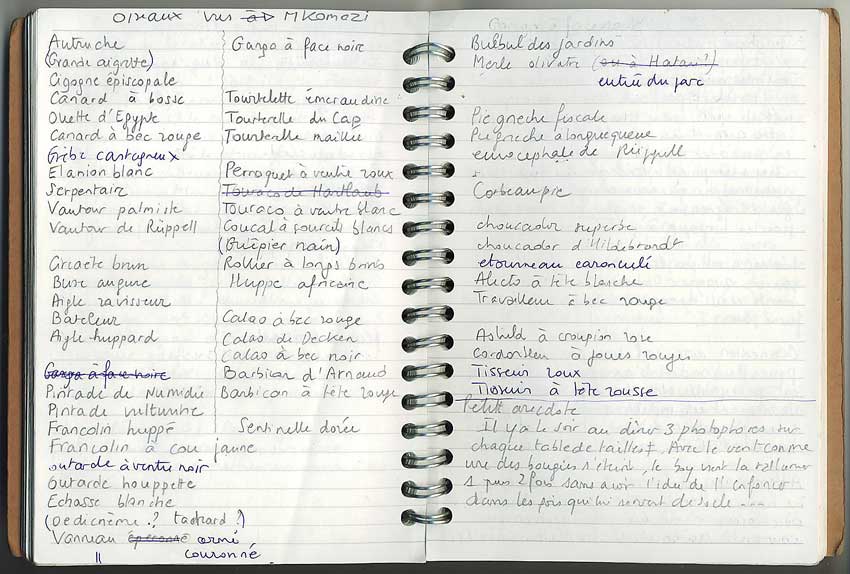 Oiseaux vus à Mkomazi
Autruche
(Grande aigrette)
Cigogne épiscopale
Canard à bosse
Ouette d'Egypte
Canard à bec rouge
Grèbe castagneux
Elanion blanc
Serpentaire
Vautour palmiste
Vautour de Rüppell
Circaète brun
Buse augure
Aigle ravisseur
Bateleur
Aigle huppard
Ganga à face noire
Pintade de Numidie
Pintade vulturine
Francolin huppé
Francolin à cou jaune
outarde à ventre noir
Outarde houppette
Echasse blanche
(Oedicnème ? tachard ?)
Vanneau éperonné armé
" couronné
Ganga à face noire
Tourtelette émeraudine
Tourterelle du Cap
Tourterelle maillée
Perroquet à ventre roux
Touraco de Hartlaub
Touraco à ventre blanc
Coucal à sourcils blancs
(Guêpier nain)
Rollier à longs brins
Huppe africaine
Calao à bec rouge
Calao de Decken
Calao à bec noir
Barbican d'Arnaud
Barbican à tête rouge
Sentinelle dorée
Bulbul des jardins
Merle olivâtre (ou à Hatari ?)
entrée du parc
Pie grièche fiscale
Pie grièche à longue queue
eurocéphale de Rüppell
Corbeau pie
choucador superbe
choucador d'Hildebrandt
etourneau caronculé
Alecto à tête blanche
Travailleur à bec rouge
Astrild à croupion rose
Cordonbleu à joues rouges
Tisserin roux
Tisserin à tête rousse
Petite anecdote
Il y a le soir au dîner 3 photophores sur
chaque table de tailles ≠. Avec le vent comme
une des bougies s'éteint, le boy vient la rallumer
1 puis 2 fois sans avoir l'idée de l'
dans les fois qui lui servent de socle ...